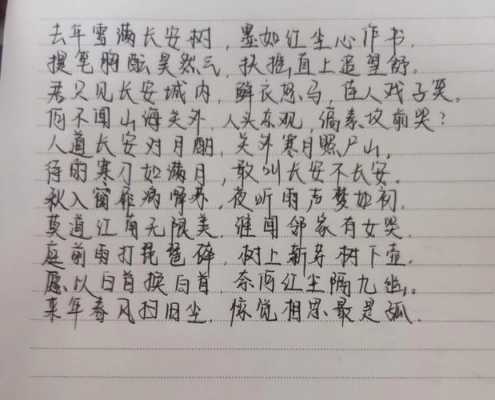 去年雪满长安树，墨如红尘心作书，
提笔胸酝昊然气，扶摇直上追望舒。
君只见长安城内，鲜衣怒马，佳人戏子笑，
何不闻山海关外，人头东观，缟素坟前哭？
人道长安对月酌，关外寒月照尸山，
待雨寒刀如满月，敢叫长安不长安。
秋入窗扉病呼苏，夜听雨声梦如初，
莫道江南无限美，谁闻邻家有女哭。
庭前雨打琵琶碎，树上新芽树下壶，
愿以白首换白首，奈何红尘隔九幽。
某年春风扫旧尘，惊觉相思最是孤。